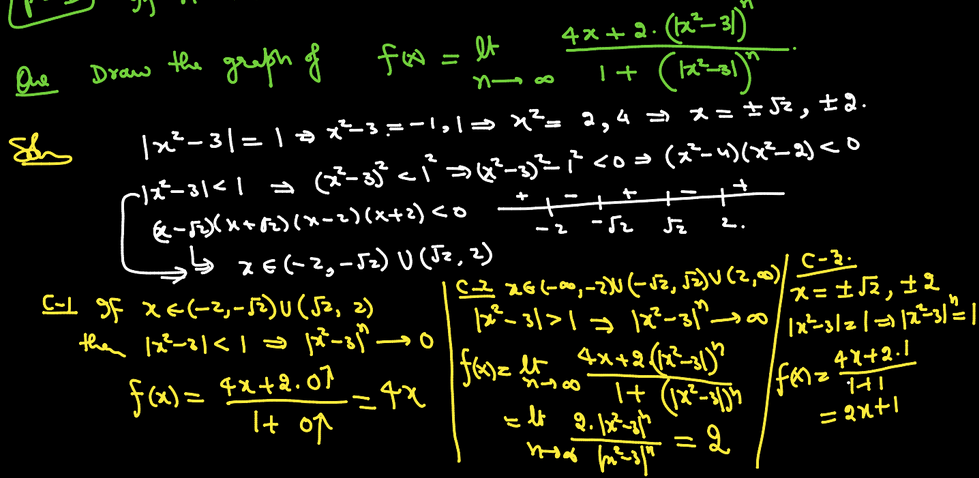 Que Draw the graph of f(x) = lt n→∞ 4x + 2·(|x²-3|)ⁿ / 1 + (|x²-3|)ⁿ.
Soln |x²-3| = 1 ⇒ x²-3 = -1, 1 ⇒ x² = 2, 4 ⇒ x = ±√2, ±2.
|x²-3| < 1 ⇒ (x²-3)² < 1² ⇒ (x²-3)² - 1² < 0 ⇒ (x²-4)(x²-2) < 0
(x-√2)(x+√2)(x-2)(x+2) < 0
+ - + - +
-2 -√2 √2 2.
↳ x ∈ (-2, -√2) ∪ (√2, 2)
C-1 If x ∈ (-2, -√2) ∪ (√2, 2)
then |x²-3| < 1 ⇒ |x²-3|ⁿ → 0
f(x) = 4x + 2.0↑ / 1 + 0↑ = 4x
C-2 x ∈ (-∞, -2) ∪ (-√2, √2) ∪ (2, ∞)
|x²-3| > 1 ⇒ |x²-3|ⁿ → ∞
f(x) = lt n→∞ 4x + 2(|x²-3|)ⁿ / 1 + (|x²-3|)ⁿ
= lt n→∞ 2.|x²-3|ⁿ / |x²-3|ⁿ = 2
C-3.
x = ±√2, ±2
|x²-3| = 1 ⇒ |x²-3|ⁿ = 1
f(x) = 4x + 2.1 / 1+1
= 2x+1